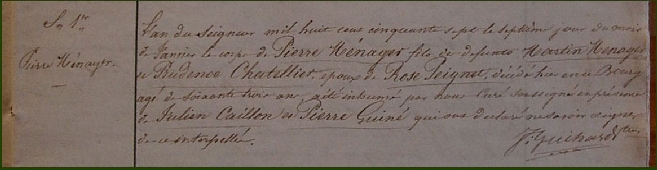 Sre 1re
Pierre Ménager.
L'an du Seigneur mil huit cent cinquante sept le septième jour du mois
de Janvier le corps de Pierre Ménager fils de defunts Martin Menager
et Prudence Chatellier, époux de Rose Peignet, décédé hier en ce Bourg
agé de soixante trois ans a été inhumé par nous Curé soussigné en présence
de Julien Caillon et Pierre Guiné qui ont declaré ne savoir signer
de ce interpellés.
Guihard